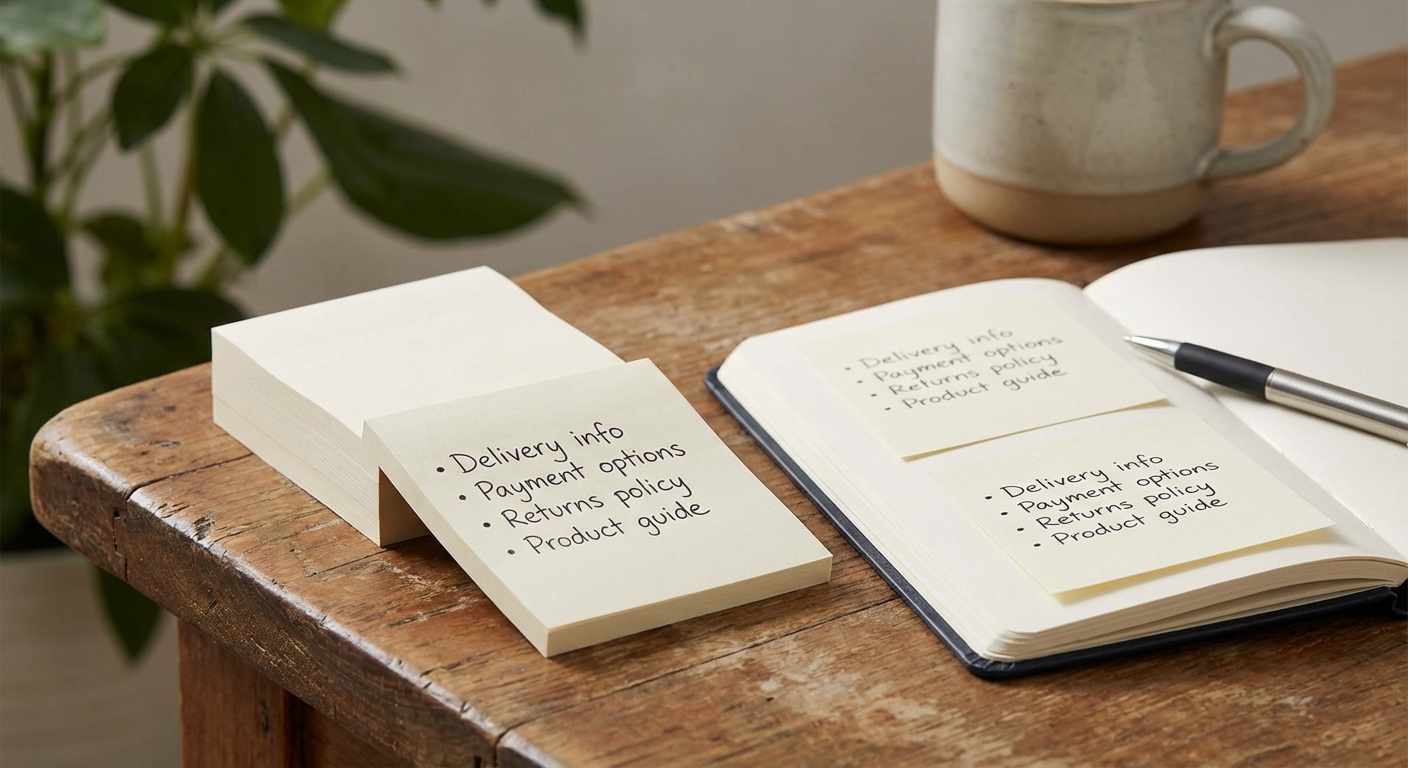 • Delivery info
• Payment options
• Returns policy
• Product guide
• Delivery info
• Payment options
• Returns policy
• Product guide
• Delivery info
• Payment options
• Returns policy
• Product guide